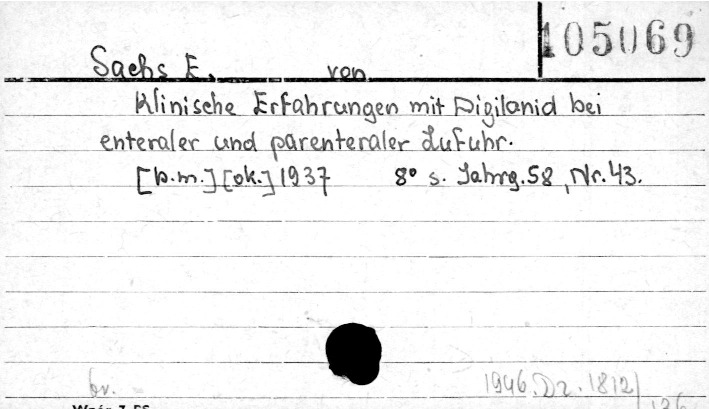 105069
Sachs E. von
Klinische Erfahrungen mit Digilanid bei
enteraler und parenteraler Zufuhr.
[b.m.] [ok.] 1937 8° s. Jahrg. 58, Nr. 43.
br. 1946. Dz. 1812/
136